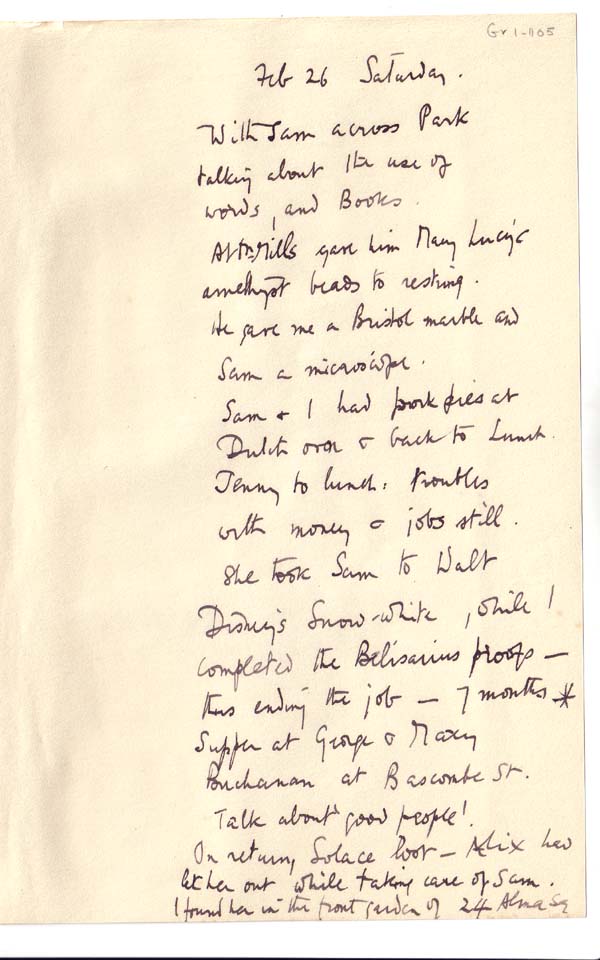 Gr 1-1105
Feb 26 Saturday.
With Sam across Park
talking about the use of
words, and Books.
At Mr. Mills gave him Mary Lucy's
amethyst beads to restring.
He gave me a Bristol marble and
Sam a microscope.
Sam & I had pork pies at
Dutch oven & back to Lunch.
Jenny to lunch: troubles
with money & jobs still.
She took Sam to Walt
Disney's Snow-white, while I
completed the Belisarius proofs —
thus ending the job — 7 months *
Supper at George & Maxy
Buchanan at Bascombe St.
Talk about 'good people'.
On return, Solace lost — Alix had
let her out while taking care of Sam.
I found her in the front garden of 24 Alma Sq